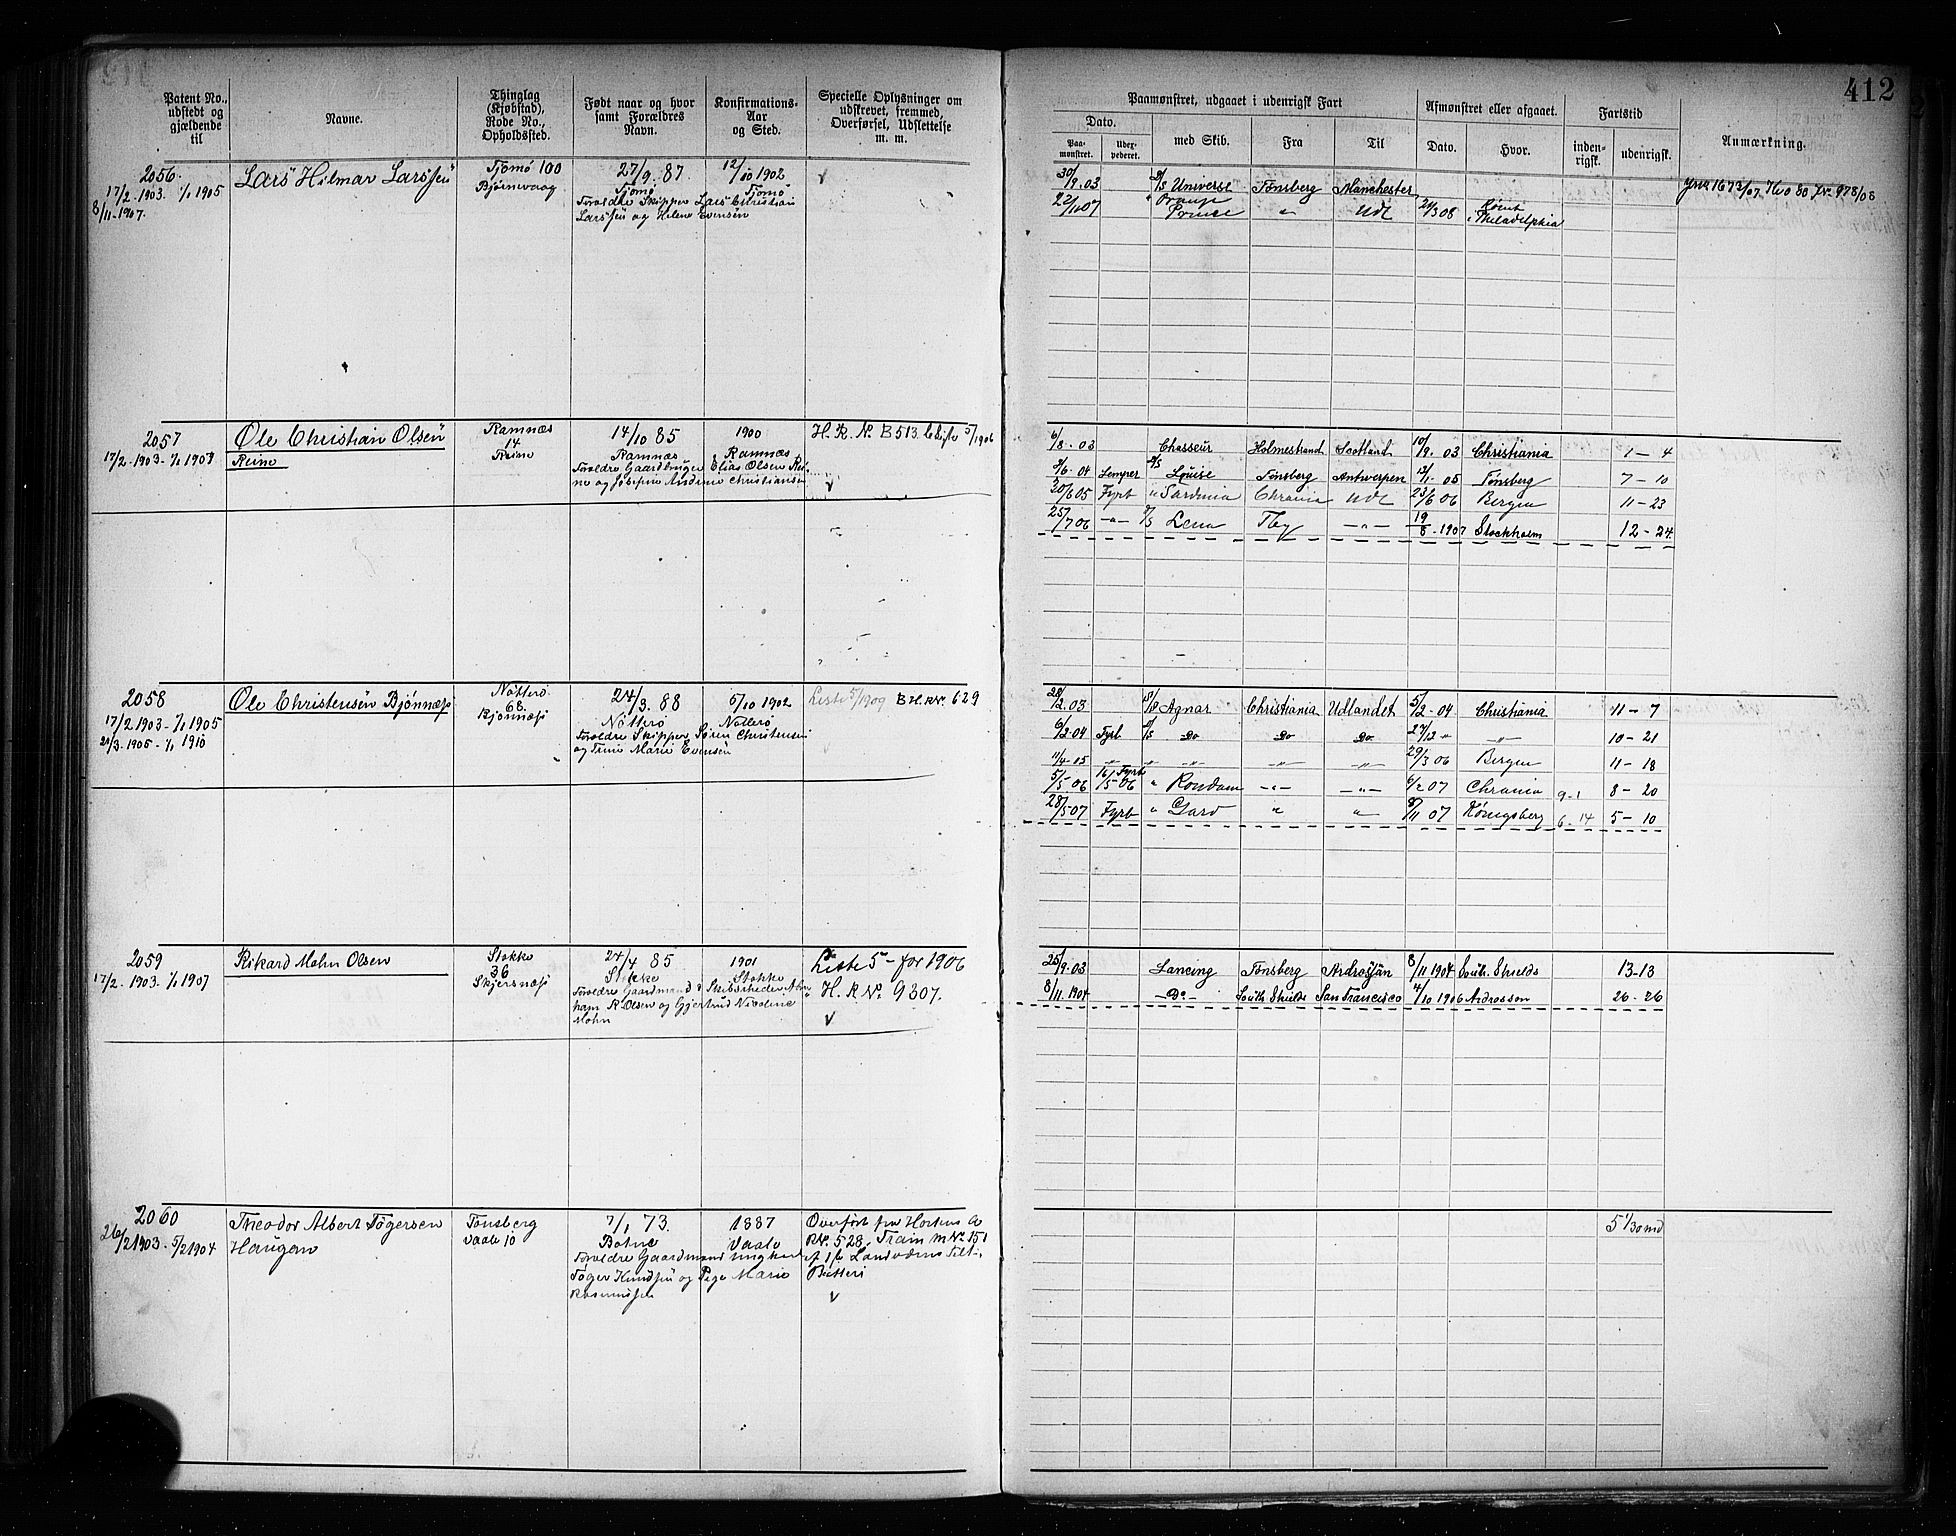 412
Patent No., udstedt og gjældende til
Navne.
Thinglag (Kjøbstad), Rode No., Opholdssted.
Født naar og hvor samt Forældres Navn.
Konfirmations-Aar og Sted.
Specielle Oplysninger om udskrevet, fremmed, Overførsel, Udslettelse m. m.
Paamønstret, udgaaet i udenrigsk Fart
Afmønstret eller afgaaet.
Fartstid
Anmærkning.
Dato.
Paamønstret.
med Skib.
Fra
Til
Dato.
Hvor.
indenrigsk.
udenrigsk.
2056.
17/2-1903. 1/1 1905
8/11-1907.
Lars Hilmar Larssen
Tjømø 100
Bjørnevaag
27/9. 87.
Tjømø
Forældre Skipper Lars Christian
Larssen og Helene Evensen
12/10 1902
Tjømø
30/9.03 Universe Tønsberg Manchester
22/11 07 Orange Prince " Udl 24/3 08 Rømt i Philadelphia
2057
17/2-1903-1/1 1907
Ole Christian Olsen
Reine
Ramnæs
14
Reine
14/10 85
Ramnæs
1900
Ramnæs
Forældre Gaardbruger Elias Olsen Reine og Josefine Andrine Christiansen
H. R. No. B 513. Liste 5/1906
6/8-03 Chasseur Holmestrand Scotland 10/9. 03 Christiania 1-4
3/6-04 Semper D/S Louise Tønsberg Antwerpen 13/11-05 Tønsberg 7-10
30/6 05 Fyrb " Sardinia Chrania Udl 23/6 06 Bergen 11-23
25/7 06 -"- D/S Lena Tbg -"- 19/8-1907 Stockholm 12-24
2058
17/2-1903-1/1 1905
21/3-1905-1/1 1910
Ole Christensen Bjønnæs
Nøtterø
68.
Bjønnæs
24/3. 88
Nøtterø
Forældre Skipper Søren Christensen
og Trine Marie Evensen
5/10 1902
Nøtterø
Liste 5/1909 B H. R No. 629
28/2.03 Agnar Christiania Udlandet 5/2-04 Christiania 11-7
6/2 04 Fyrb D/S Do Do Do 27/12 " -"- 10-21
11/4-05 -"- -"- -"- -"- -"- 29/3 06 Bergen 11-18
5/5-06 16/5 06 Fyrb " Rondane -"- -"- 6/2 07 Chrania 9-1 8-20
28/5 07 Fyrb " Gard " " 8/11 07 Königsberg 6-14 5-10
2059
17/2-1903-1/1 1907
Rikard Mohn Olsen
Stokke
36
Skjersnæs
24/4 85
Stokke
Forældre Gaardmand & Skibsrheder Abraham R. Olsen og Gjertrud Nicoline
Mohn
1901
Stokke
Liste 5 - for 1906
H. R No. 9307.
25/9.03 Lancing Tønsberg Ardrossan 8/11 1904 South Shields 13-13
8/11 1904 -Do- South Shields San Francisco 4/10 1906 Ardrossan 26-26
2060
26/2 1903-5/2 1904
Theodor Albert Tøgersen
Haugan
Tønsberg
Vaale 10
7/1 73.
Botne
Forældre Gaardmand
Tøger Knudsen og Marie
Rasmussen
1887
Vaale
Overført fra Hortens A
R No. 528, Train m No. 151
Batteri
5 1/30 md